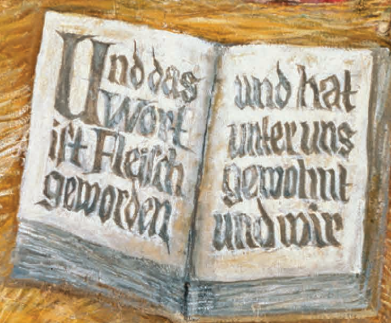 Und das
Wort
ist Fleisch
geworden
und hat
unter uns
gewohnt
und wir